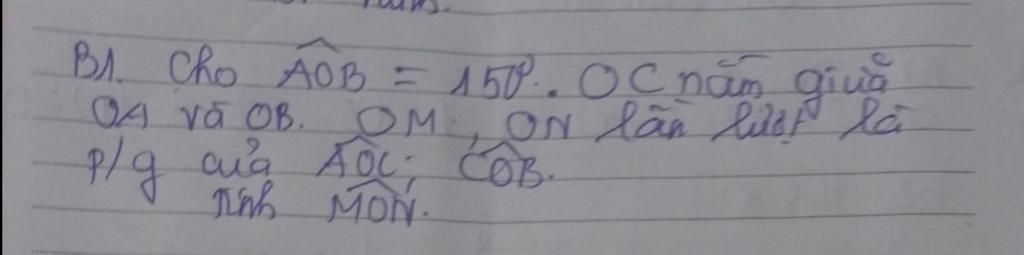 B1. Cho AOB = 150°. OC nằm giữa
OA và OB. OM, ON lần lượt là
p/g của AOC; COB.
Tính MON.